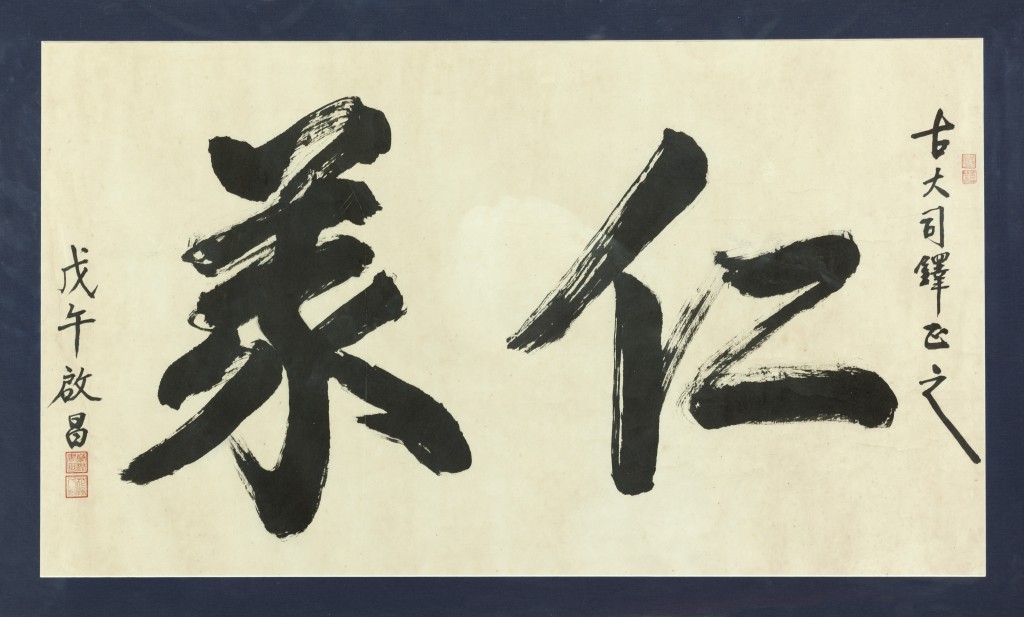 古大司鐸正之
仁業
戊午 啟昌